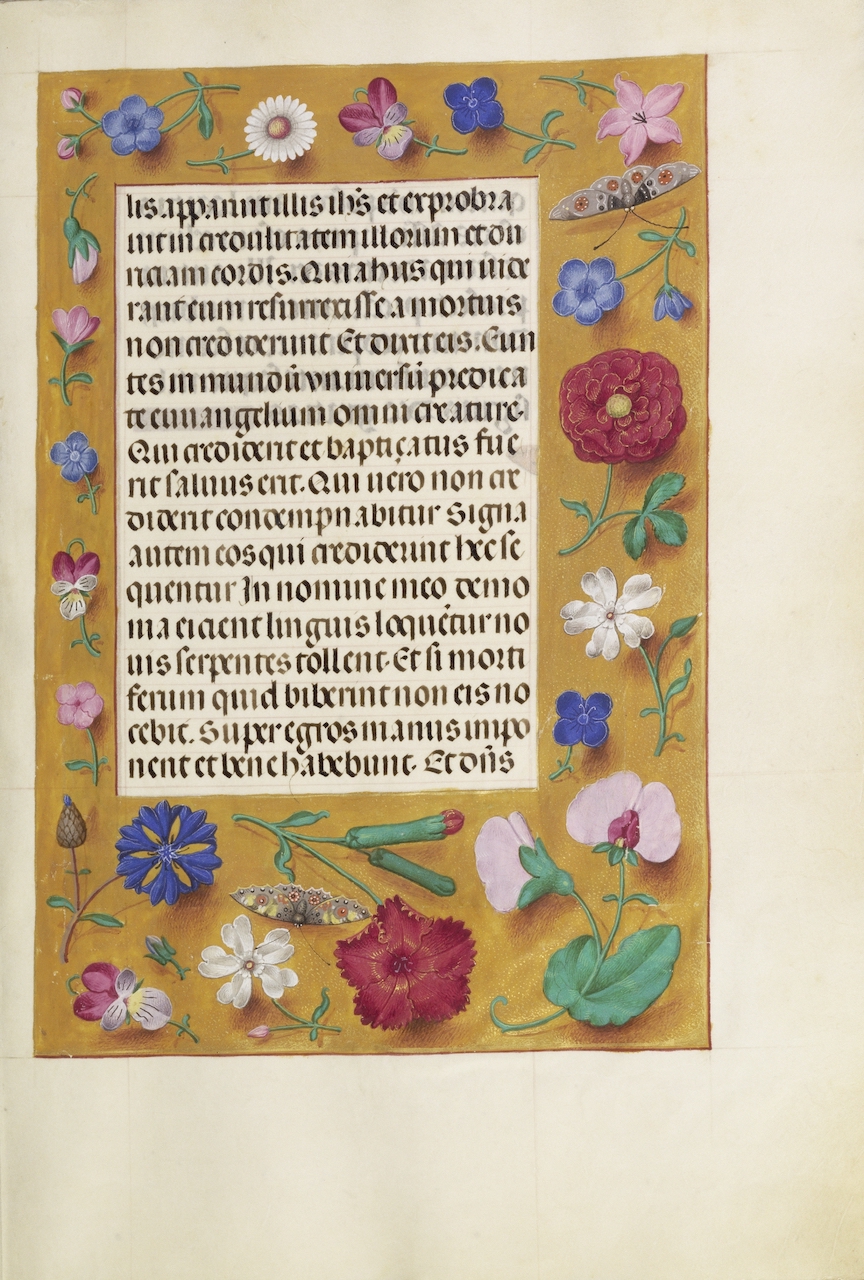 lis apparuit illis ihs̄ et exprobra
uit incredulitatem illorum et du
riciam cordis. Quia hiis qui uide
rant eum resurrexisse a mortuis
non crediderunt Et dixit eis. Eun
tes in mundū vniuersū predica
te euuangelium omni creature.
Qui crediderit et baptiçatus fue
rit saluus erit. Qui uero non cre
diderit condempnabitur Signa
autem eos qui crediderunt hec se
quentur In nomine meo demo
nia eicient linguis loquētur no
uis serpentes tollent. Et si morti
ferum quid biberint non eis no
cebit. Super egros manus impo
nent et bene habebunt. Et dn̄s